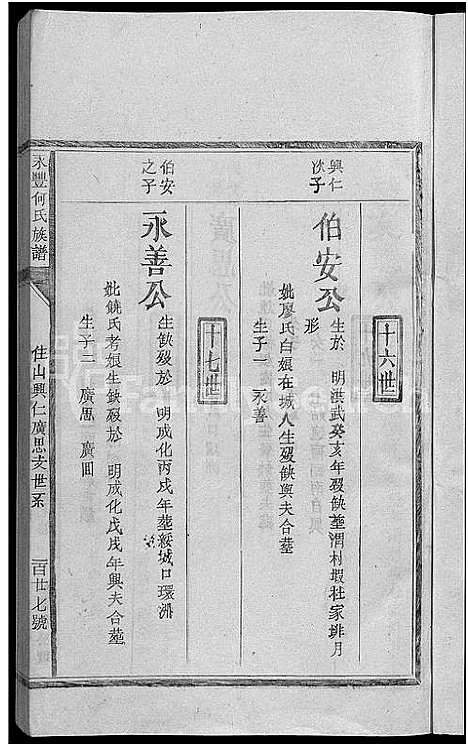 十六世
興仁
次子
伯安公
生於 明洪武癸亥年殁缺塟渭村瑕社家堋月
形
妣廖氏白娘在城人生殁缺與夫合塟
生子一 永善
十七世
伯安
之子
永善公
生缺殁於 明成化丙戌年塟綏城口環洲
妣饒氏考娘生缺殁於 明成化戊戌年與夫合塟
生子二 廣思 廣圓
永豐何氏族譜
住山興仁廣思支世系
一百廿七號